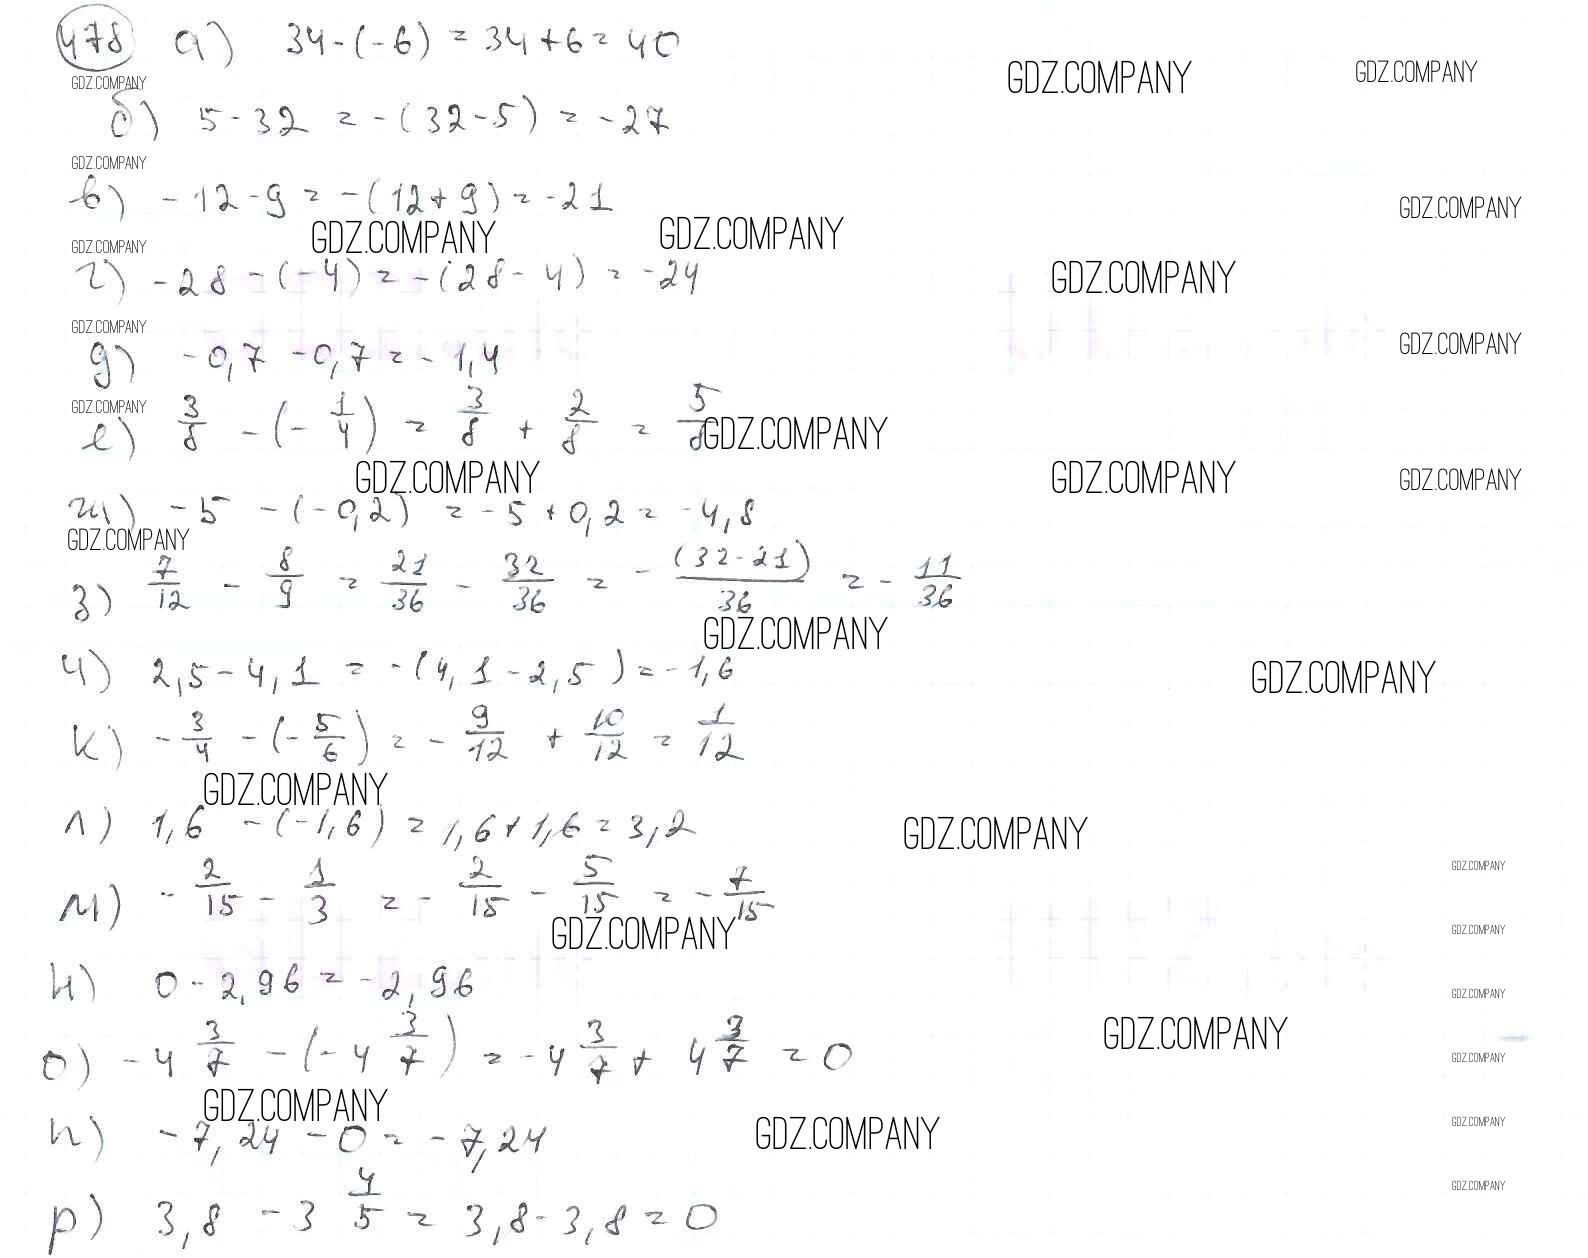 478 а) 34-(-6) = 34+6 = 40
GDZ.COMPANY GDZ.COMPANY GDZ.COMPANY
б) 5-32 = -(32-5) = -27
GDZ.COMPANY
в) -12-9 = -(12+9) = -21
GDZ.COMPANY
GDZ.COMPANY GDZ.COMPANY GDZ.COMPANY
г) -28-(-4) = -(28-4) = -24
GDZ.COMPANY
GDZ.COMPANY GDZ.COMPANY
д) -0,7-0,7 = -1,4
GDZ.COMPANY
е) 3/8 - (-1/4) = 3/8 + 2/8 = 5/8
GDZ.COMPANY
GDZ.COMPANY GDZ.COMPANY GDZ.COMPANY
ж) -5-(-0,2) = -5+0,2 = -4,8
GDZ.COMPANY
з) 7/12 - 8/9 = 21/36 - 32/36 = -(32-21)/36 = -11/36
GDZ.COMPANY
и) 2,5-4,1 = -(4,1-2,5) = -1,6
GDZ.COMPANY
к) -3/4 - (-5/6) = -9/12 + 10/12 = 1/12
GDZ.COMPANY
л) 1,6-(-1,6) = 1,6+1,6 = 3,2
GDZ.COMPANY
GDZ.COMPANY
м) -2/15 - 1/3 = -2/15 - 5/15 = -7/15
GDZ.COMPANY GDZ.COMPANY
н) 0-2,96 = -2,96
GDZ.COMPANY
GDZ.COMPANY
о) -4 3/7 - (-4 3/7) = -4 3/7 + 4 3/7 = 0
GDZ.COMPANY
GDZ.COMPANY
п) -7,24-0 = -7,24
GDZ.COMPANY GDZ.COMPANY
GDZ.COMPANY
р) 3,8 - 3 4/5 = 3,8-3,8 = 0